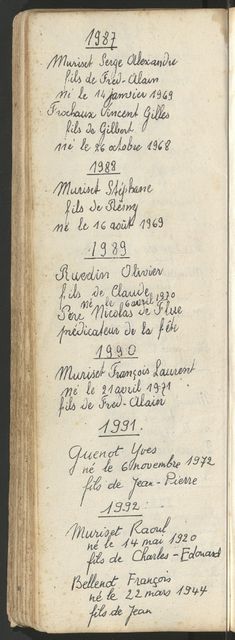 1987
Muriset Serge Alexandre
fils de Fred-Alain
né le 14 janvier 1969
Frochaux Vincent Gilles
fils de Gilbert
né le 26 octobre 1968
1988
Muriset Stéphane
fils de Rémy
né le 16 août 1969
1989
Ruedin Olivier
fils de Claude
né le 6 avril 1970
Père Nicolas de Flue
prédicateur de la fête
1990
Muriset François Laurent
né le 21 avril 1971
fils de Fred-Alain
1991.
Guenot Yves
né le 6 novembre 1972
fils de Jean-Pierre
1992
Muriset Raoul
né le 14 mai 1920
fils de Charles-Edouard
Bellenot François
né le 22 mars 1944
fils de Jean